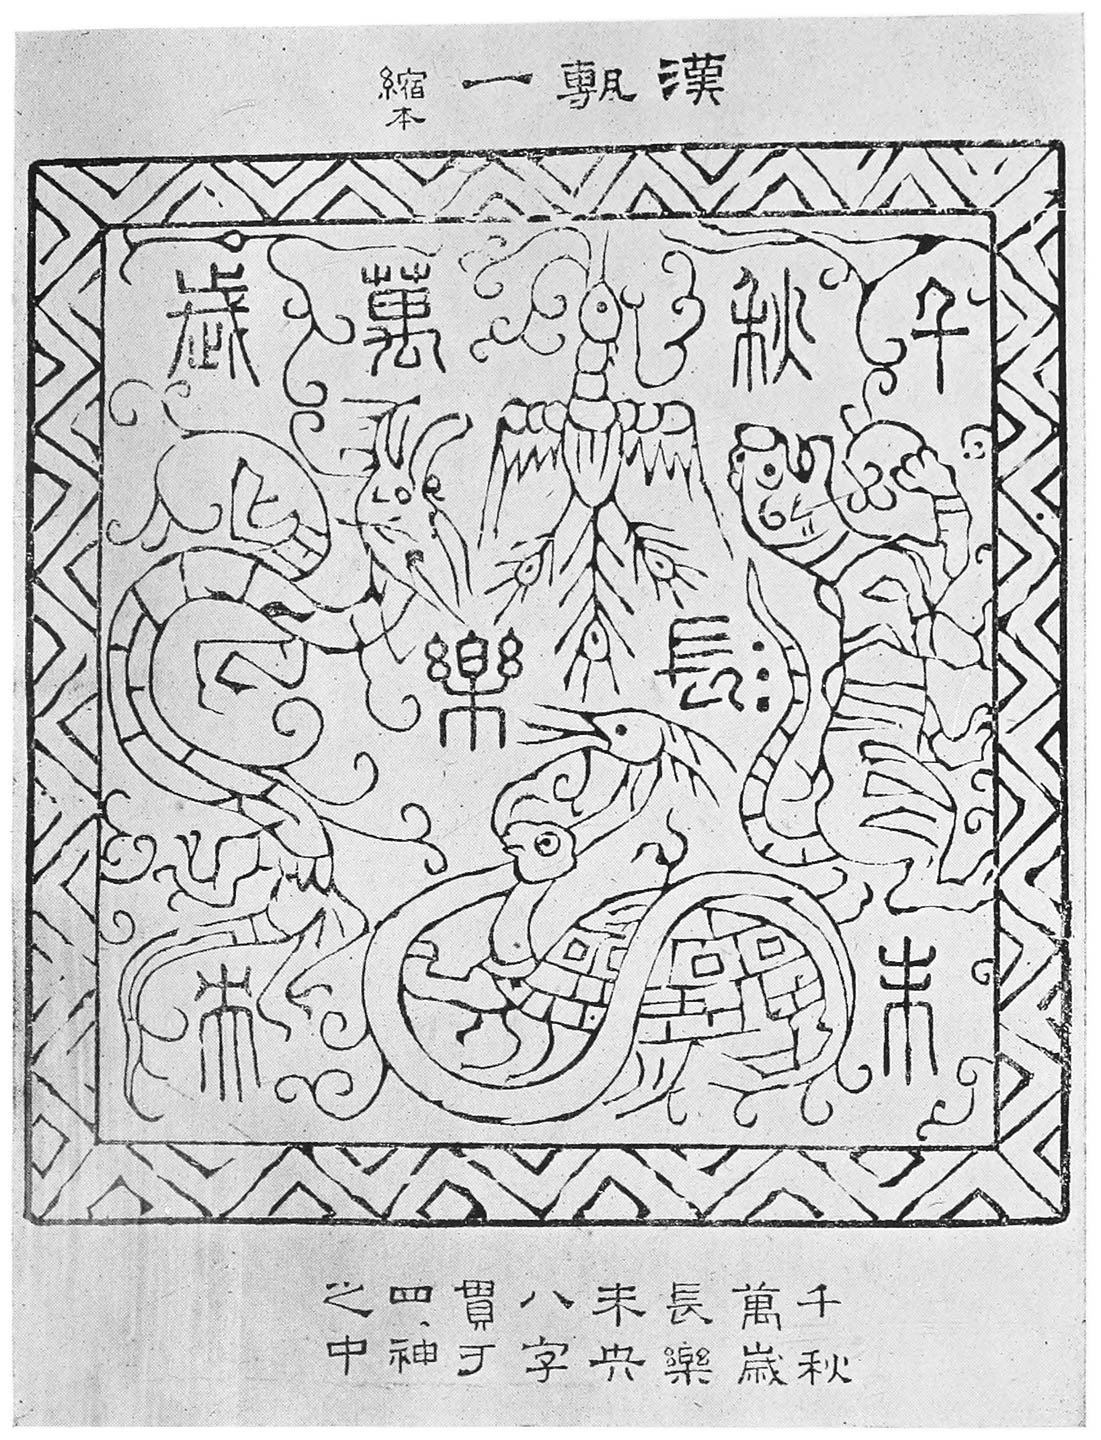 漢甎一縮本
千秋萬歲
長樂
未央
千秋
萬歲
長樂
未央
八字
貫于
四神
之中